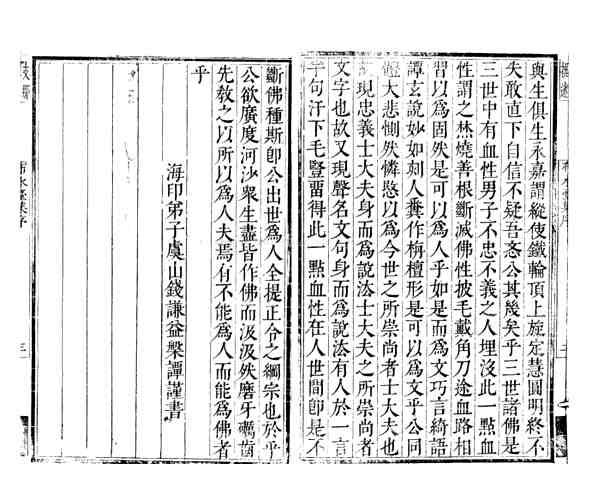 與生俱生永嘉謂縱使鐵輪頂上旋定慧圓明終不
失敢直下自信不疑吾忞公其幾矣乎三世諸佛是
三世中有血性男子不忠不義之人埋沒此一點血
性謂之焚燒善根斷滅佛性披毛戴角刀途血路相
習以爲固然是可以爲人乎如是而爲文巧言綺語
譚玄說妙如刻人糞作栴檀形是可以爲文乎公同
體大悲惻然憐愍以爲今世之所崇尚者士大夫也
故現忠義士大夫身而爲說㳒士大夫之所崇尚者
文字也故又現聲名文句身而爲說㳒有人於一言
半句汗下毛豎畱得此一點血性在人世間卽是不
斷佛種斯卽公出世爲人全提正令之綱宗也於乎
公欲廣度河沙衆生盡皆作佛而汲汲然磨牙嚙齒
先敎之以所以爲人夫焉有不能爲人而能爲佛者
乎
海印弟子虞山錢謙益槃譚謹書